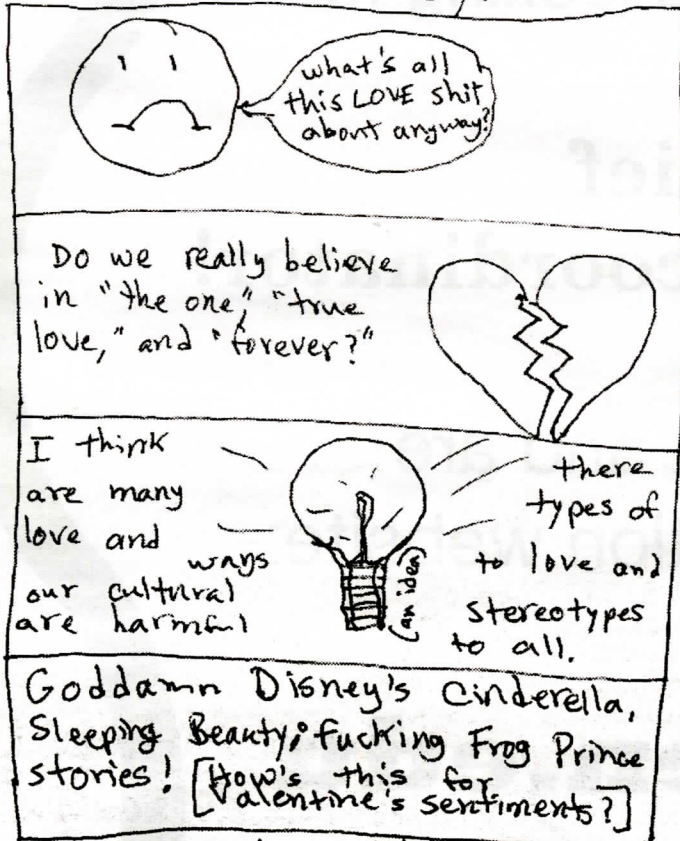 what's all
this LOVE shit
about anyway?
Do we really believe
in "the one," "true
love," and "forever?"
I think there
are many types of
love and ways to love and
our cultural stereotypes
are harmful to all.
(an idea)
Goddamn Disney's Cinderella,
Sleeping Beauty, fucking Frog Prince
stories! [How's this for
Valentine's sentiments?]